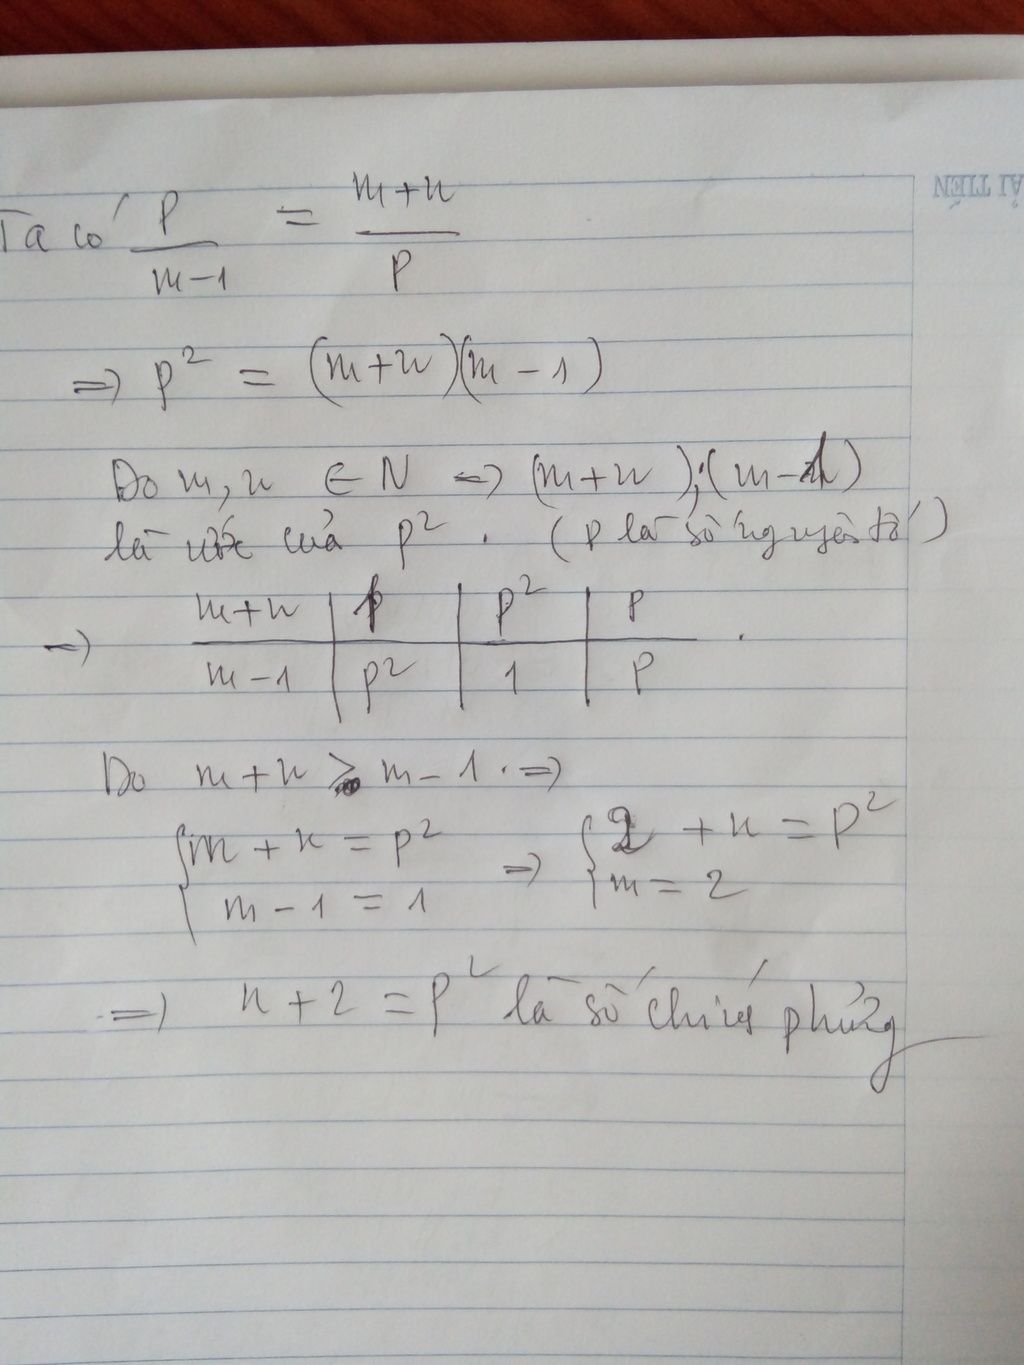 Ta có P/(m-1) = (m+n)/P
=> P² = (m+n)(m-1)
Do m, n ∈ N => (m+n); (m-1)
là ước của P². (P là số nguyên tố)
=> m+n | P | P² | P
m-1 | P² | 1 | P
Do m+n > m-1 . =>
{ m+n = P² => { 2 + n = P²
m-1 = 1 m = 2
=> n+2 = P² là số chính phương
ẢI TIẾN